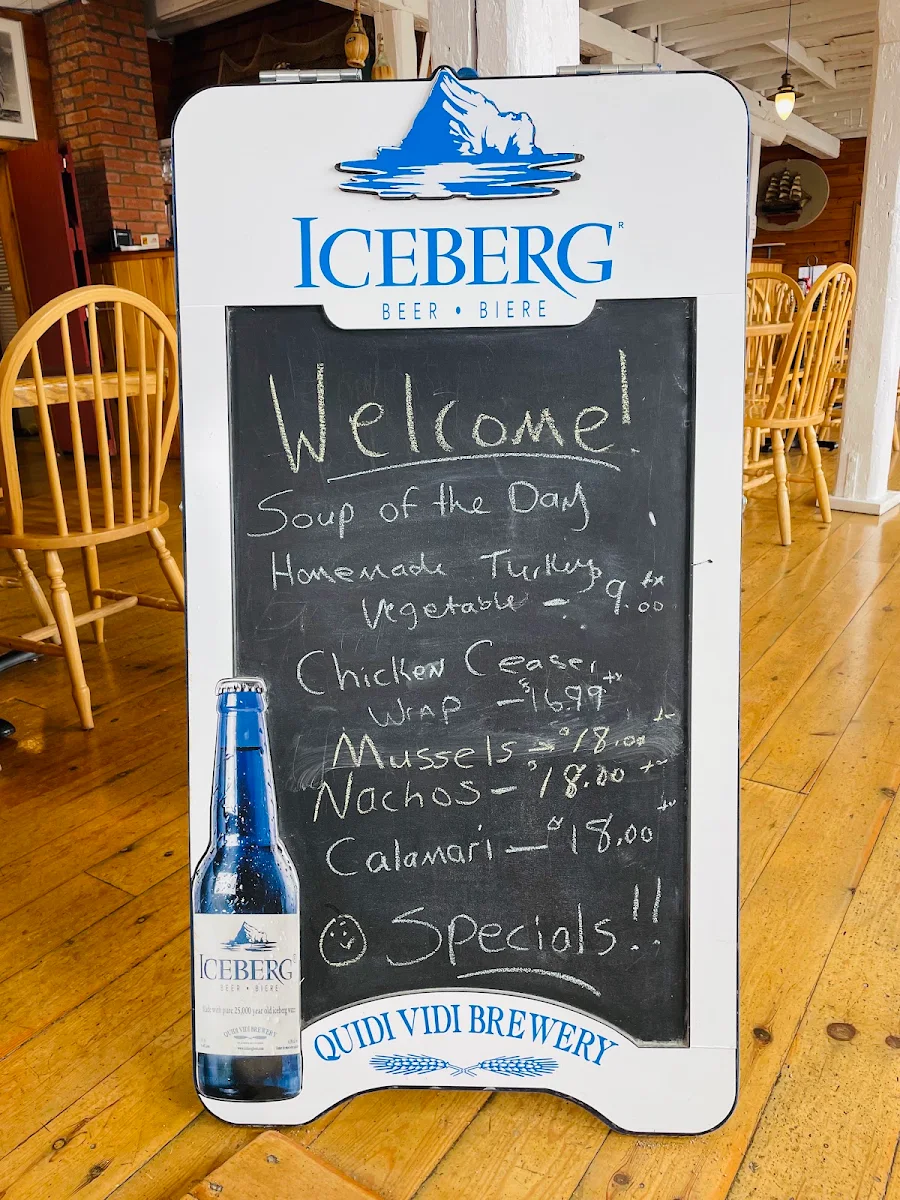 ICEBERG
BEER • BIERE
Welcome!
Soup of the Day
Homemade Turkey
Vegetable - 9.00 tx
Chicken Ceaser
Wrap - $16.99 tx
Mussels - $18.00 tx
Nachos - $18.00 tx
Calamari - $18.00 tx
Specials!!
ICEBERG
BEER • BIERE
Made with pure 25,000 year old iceberg water
QUIDI VIDI BREWERY
QUIDI VIDI BREWERY